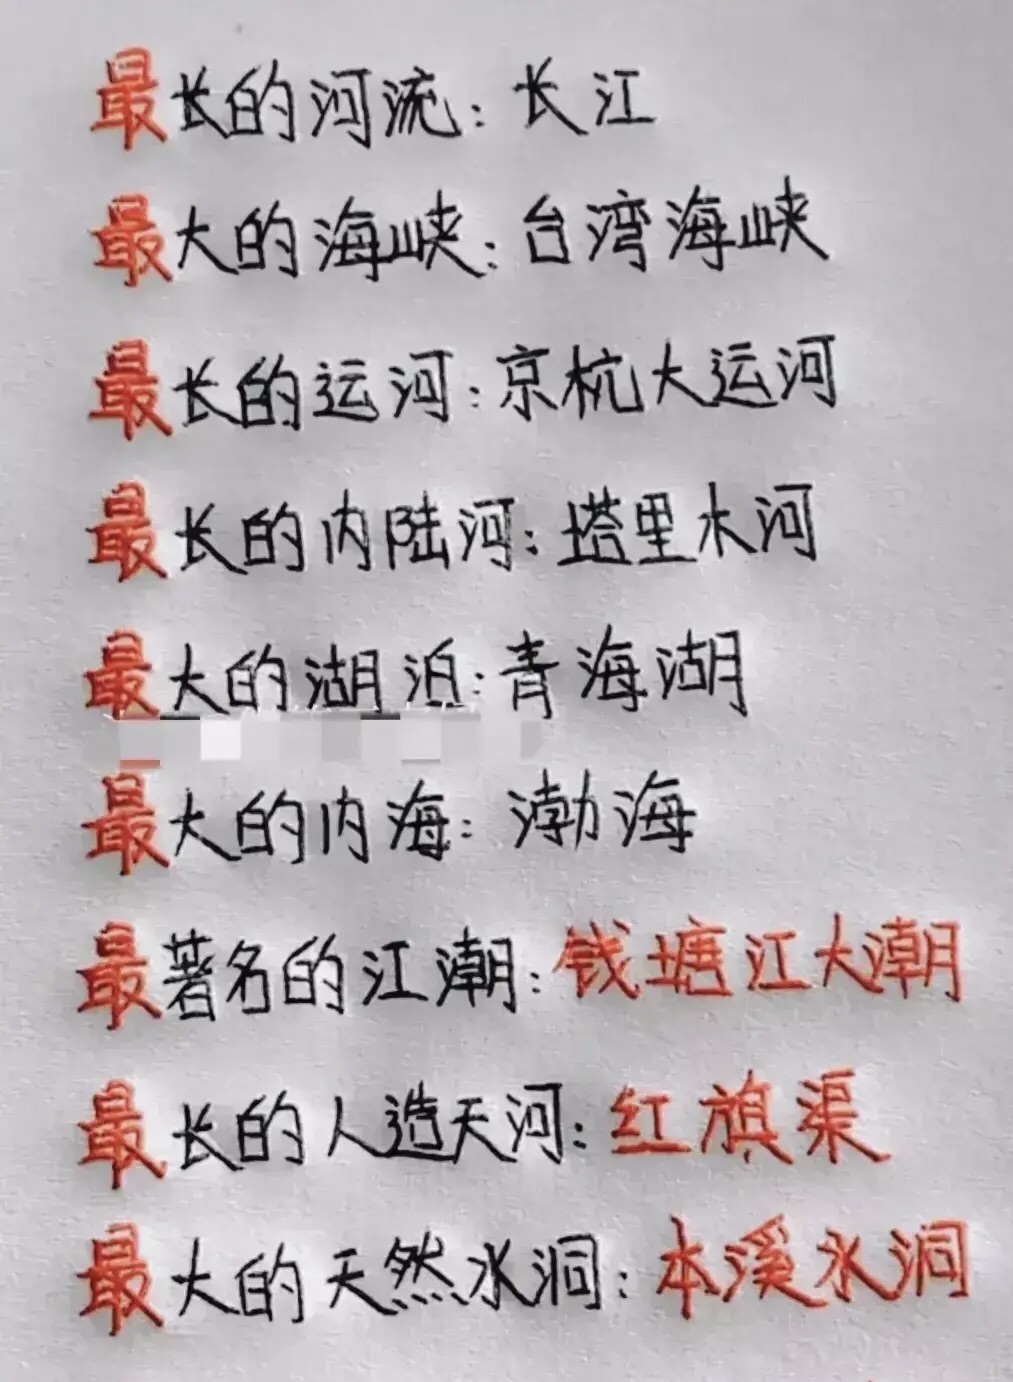 最长的河流：长江
最大的海峡：台湾海峡
最长的运河：京杭大运河
最长的内陆河：塔里木河
最大的湖泊：青海湖
最大的内海：渤海
最著名的江潮：钱塘江大潮
最长的人造天河：红旗渠
最大的天然水洞：本溪水洞